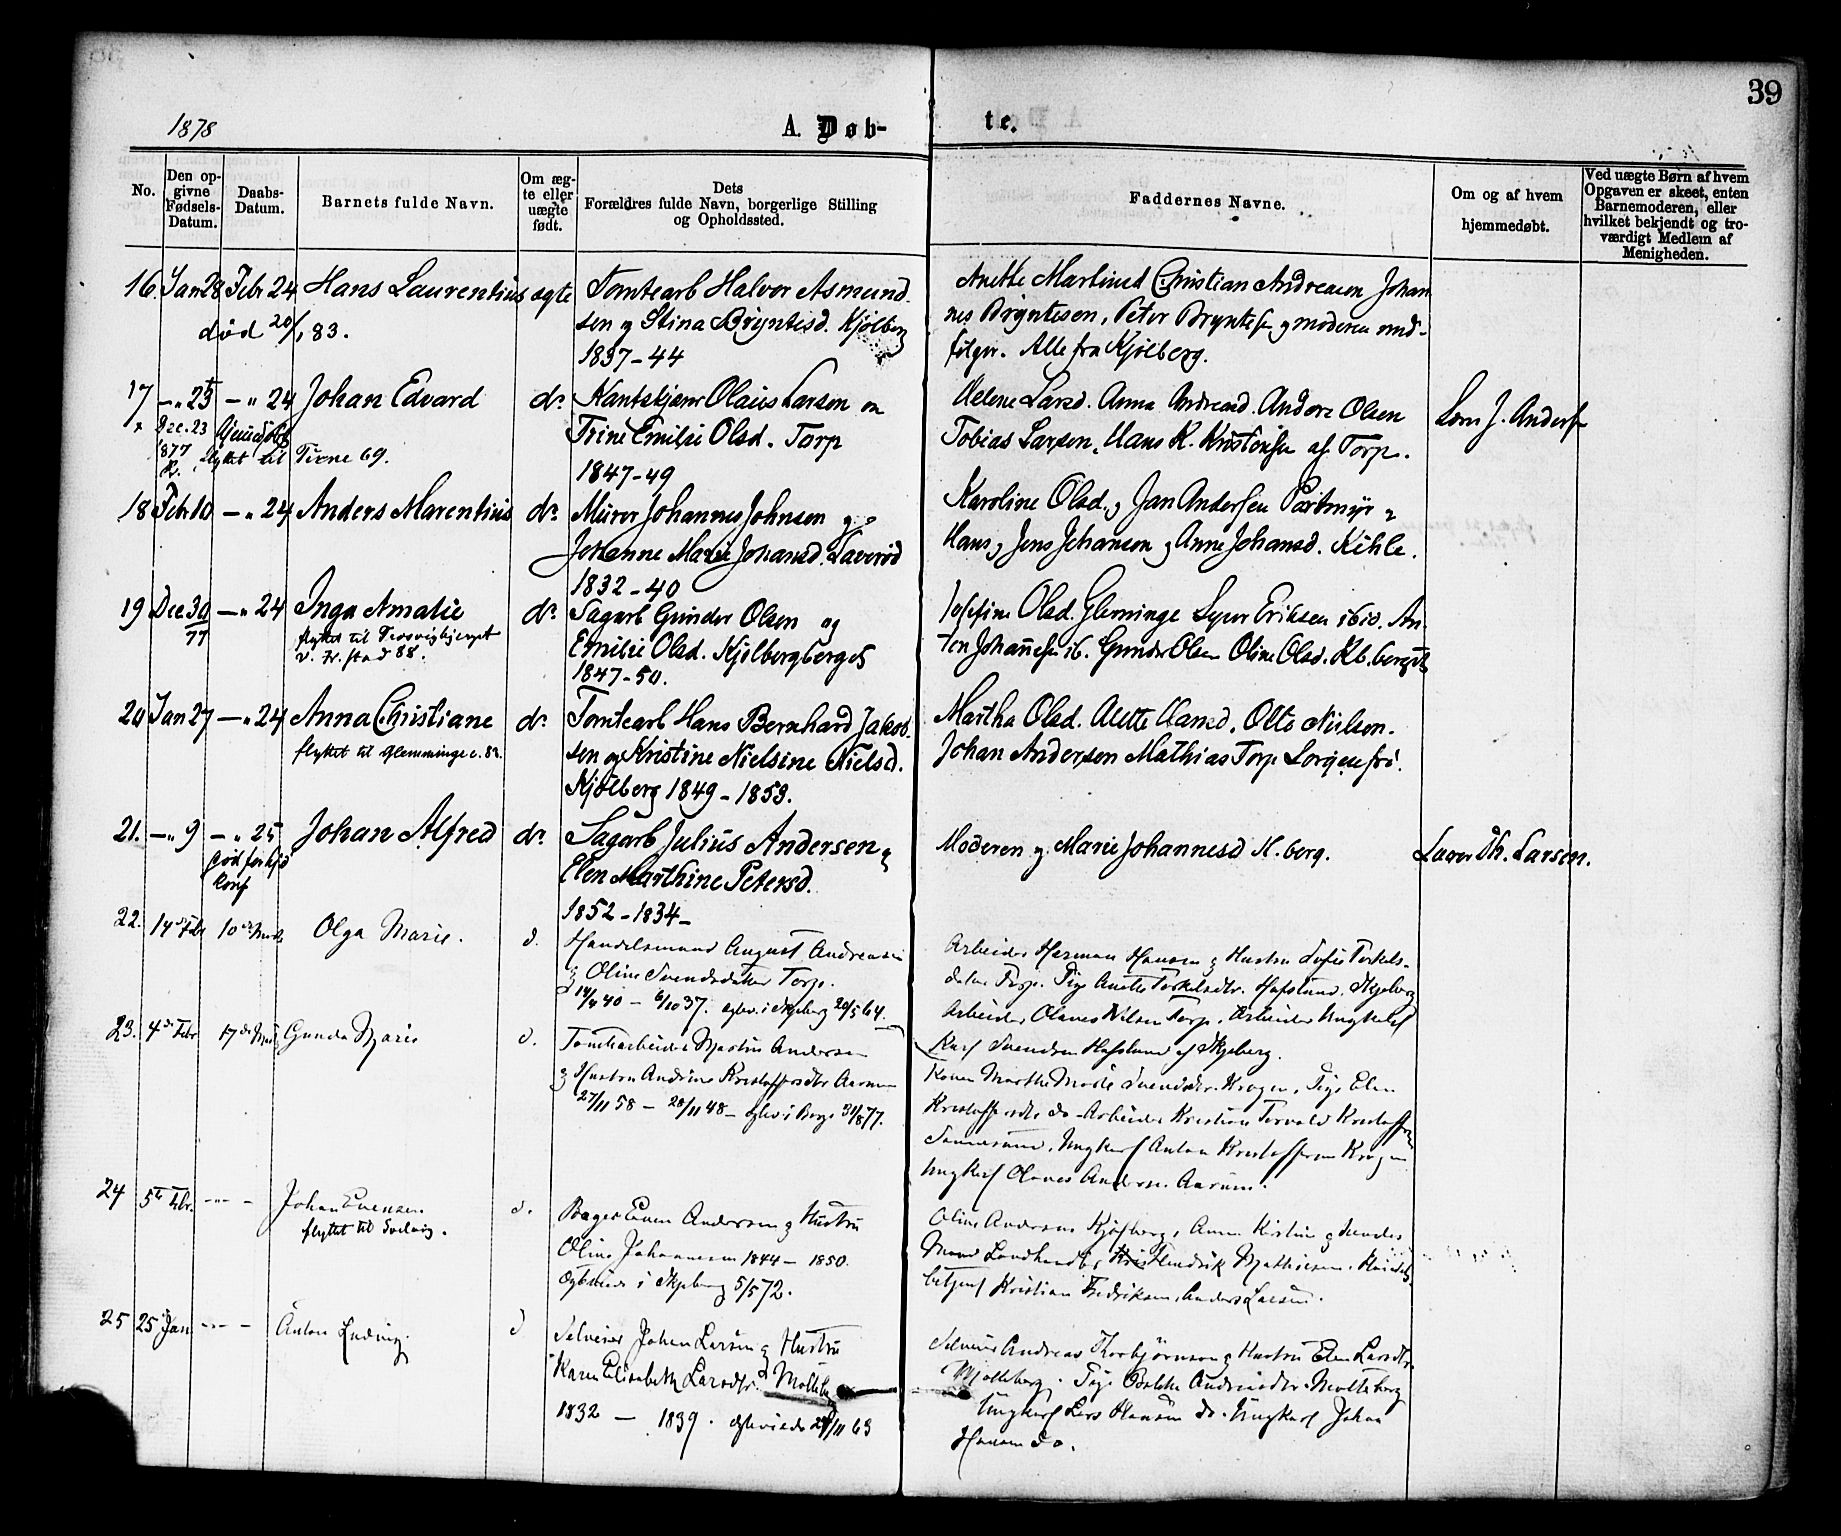 39
1878
A. Døb-
te.
No.
Den op-
givne
Fødsels-
Datum.
Daabs-
Datum.
Barnets fulde Navn.
Om æg-
te eller
uægte
født.
Dets
Forældres fulde Navn, borgerlige Stilling
og Opholdssted.
Faddernes Navne.
Om og af hvem
hjemmedøbt.
Ved uægte Børn af hvem
Opgaven er skeet, enten
Barnemoderen, eller
hvilket bekjendt og tro-
værdigt Medlem af
Menigheden.
16. Jan 28 Febr 24 Hans Laurentius ægte
død 20/1 83.
Tomtearb Halvor Asmund
sen og Stina Bryntesd. Kjølberg
1837-44
Anette Martinsd Christian Andreasen Johan
nes Bryntesen, Peter Bryntesen og moderen
Alle fra Kjølberg.
17 -"- 25 -"- 24 Johan Edvard do
Dec. 23
1877
flyttet til Tune 69.
Olaus Larson
Trine Emilie Olsd. Torp
1847-49
Helene Larsd. Anna Andreasd. Anders Olsen
Tobias Larsen, Hans K. Kristensen af Torp.
J. Anders
18 Febr 10 -"- 24 Anders Marentius do
Murer Johannes Johnsen og
Johanne Marie Johansd.
1832-40
Karoline Olsd. og Jan Andersen
Hans og Jens Johanson og Anne Johansd. Kihle.
19 Dec 30 -"- 24 Inga Amalie do
77
flyttet til
v. Fr.stad 88.
Sagarb Gunder Olsen og
Emilie Olsd. Kjølbergberget
1847-50.
Josefine Olsd. Glemminge Syver Eriksen ibid. An-
ton Johannesen ib. Gunder Olsen Oline Olsd. Kb. berget
20 Jan 27 -"- 24 Anna Christiane do
flyttet til Glemminge c. 82.
Tomtearb Hans Bernhard Jakob
sen og Kristine Nielsine Nielsd.
Kjølberg 1849-1853.
Martha Olsd. Alette Hansd. Otto Nielsen.
Johan Andersen Mathias Torp Sorgenfri.
21. -"- 9 -"- 25 Johan Alfred do
Sagarb Julius Andersen og
Elen Marthine Petersd.
1852-1834-
Moderen og Marie Johannesd K. berg.
Th. Larsen.
22. 14 Febr 10de Olga Marie. d.
Handelsmand August Andreasen
og Oline Svendsdatter Torp.
14/4 40 - 6/10 37. i Skjeberg 20/5 64.
Arbeider Herman Hansen og Hustru Sofie Terkels-
datter Torp. Pige Anette Terkelsdtr. Hafslund. Skjeberg
Arbeider Olaves Nilsen Torp, Arbeider Ungkarl
Karl Svendsen Hafslund af Skjeberg.
23. 4de Febr 17de Gunda Marie d.
Tomtearbeider Martin Andersen
og Hustru Andrine Kristoffersdtr Aarum
27/11 58 - 28/11 48 - i Borge 31/8 77.
Konen Marthe Marie Svendsdtr. Krogen, Pige Elen
Kristoffersdtr do - Arbeider Kristian Torvald Kristoffersen
Ungkarl Anton Kristoffersen Krogen
Ungkarl Olaves Andersen Aarum.
24 5te Febr. -"- Johan Evensen d.
flyttet til Solvig.
Bager Even Andersen og Hustru
Oline Johannesen 1844 - 1850.
i Skjeberg 5/5 72.
Oline Andersen Kjølberg, Anna Kristine
Landhandler Hendrik Mathiesen.
Kristian Fredriksen, Anders Larsen.
25 25 Jan -"- Anton Ludvig. d
Selveier Johan Larsen og Hustru
Karen Elisabeth Larsdtr.
1832 - 1839. 63
Selveier Andreas Thorbjørnsen og Hustru Elen Larsdtr
Molleberg. Pige Andreasdtr. Molleberg
Ungkarl Lars Hansen do. Ungkarl Johan
Hansen do.